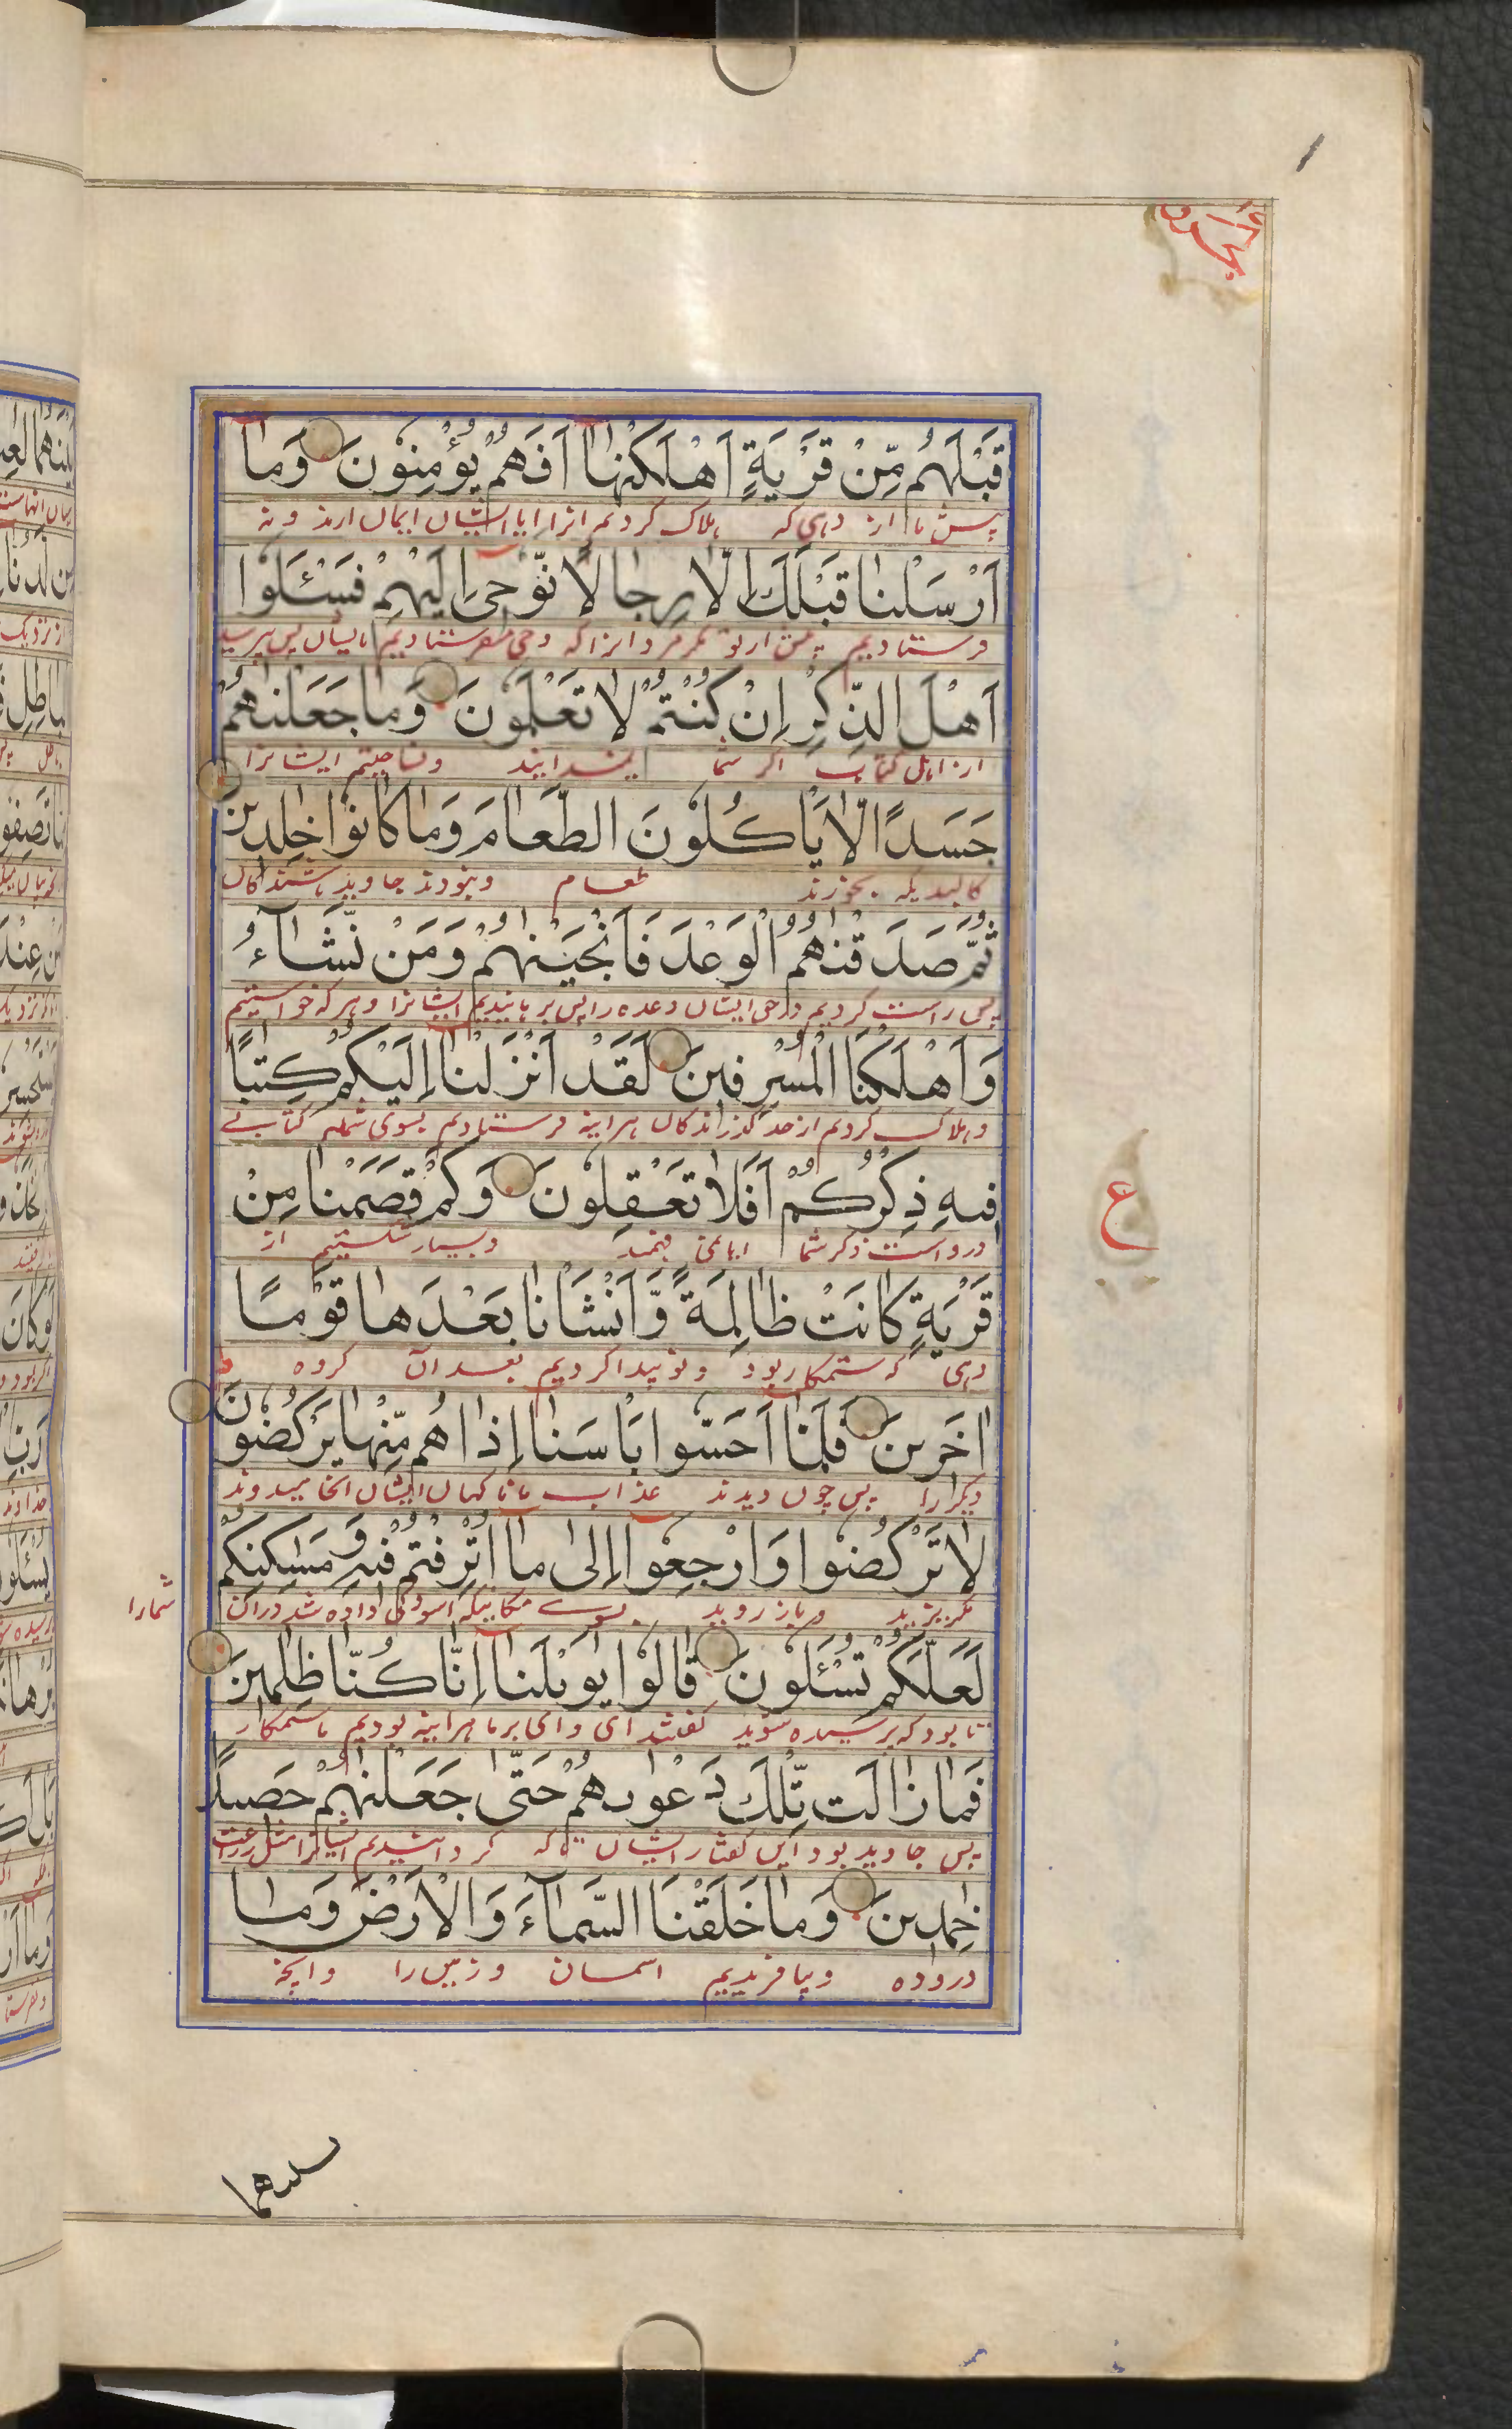 قَبْلَهُمْ مِّنْ قَرْيَةٍ اَهْلَكْنٰهَا اَفَهُمْ يُؤْمِنُوْنَ وَمَا
پیش ما از دهی که هلاک کردیم انرا ایا ایشان ایمان ارند و نه
اَرْسَلْنَا قَبْلَكَ اِلَّا رِجَالًا نُّوْحِىْ اِلَيْهِمْ فَسْـَٔلُوْا
فرستادیم پیش از تو مگر مردانرا که وحی میفرستادیم بایشان پس بپرسید
اَهْلَ الذِّكْرِ اِنْ كُنْتُمْ لَا تَعْلَمُوْنَ وَمَا جَعَلْنٰهُمْ
از اهل کتاب اگر شما نمیدانید و نساختیم ایشانرا
جَسَدًا لَّا يَاْكُلُوْنَ الطَّعَامَ وَمَا كَانُوْا خٰلِدِيْنَ
کالبدیکه نخورند طعام و نبودند جاوید باشندکان
ثُمَّ صَدَقْنٰهُمُ الْوَعْدَ فَاَنْجَيْنٰهُمْ وَمَنْ نَّشَآءُ
پس راست کردیم در حق ایشان وعده را پس برهانیدیم ایشانرا و هر که خواستیم
وَاَهْلَكْنَا الْمُسْرِفِيْنَ لَقَدْ اَنْزَلْنَا اِلَيْكُمْ كِتٰبًا
و هلاک کردیم از حد گذرانندکان هراینه فرستادیم بسوی شما کتابی
فِيْهِ ذِكْرُكُمْ اَفَلَا تَعْقِلُوْنَ وَكَمْ قَصَمْنَا مِنْ
ع
درو است ذکر شما ایا نمی فهمید و بسیار شکستیم از
قَرْيَةٍ كَانَتْ ظَالِمَةً وَّاَنْشَاْنَا بَعْدَهَا قَوْمًا
دهی که ستمکار بود و نو پیدا کردیم بعد آن کروه
اٰخَرِيْنَ فَلَمَّا اَحَسُّوْا بَاْسَنَا اِذَا هُمْ مِّنْهَا يَرْكُضُوْنَ
دیکر را پس چون دیدند عذاب ما ناکهان ایشان انجا میدوند
لَا تَرْكُضُوْا وَارْجِعُوْا اِلٰى مَا اُتْرِفْتُمْ فِيْهِ وَمَسٰكِنِكُمْ
مگریزید و باز روید بسوی مکانیکه اسودگی داده شد دران شمارا
لَعَلَّكُمْ تُسْـَٔلُوْنَ قَالُوْا يٰوَيْلَنَا اِنَّا كُنَّا ظٰلِمِيْنَ
تا بود که پرسیده شوید گفتند ای وای بر ما هراینه بودیم ما ستمکار
فَمَا زَالَتْ تِّلْكَ دَعْوٰىهُمْ حَتّٰى جَعَلْنٰهُمْ حَصِيْدًا
پس جاوید بود این گفتار ایشان تا که کردانیدیم ایشانرا مثل زراعت
خٰمِدِيْنَ وَمَا خَلَقْنَا السَّمَآءَ وَالْاَرْضَ وَمَا
دروده و نیافریدیم اسمان و زمین را و انچه